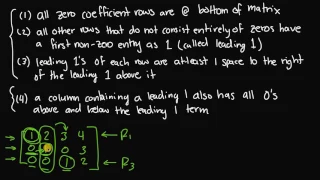 (1) all zero coefficient rows are @ bottom of matrix
(2) all other rows that do not consist entirely of zeros have
a first non-zoo entry as 1 (called leading 1)
(3) leading 1's of each row are atleast 1 space to the right
of the leading 1 above it
(4) a column containing a leading 1 also has all 0's
above and below the leading 1 term
1 2 3 4 R1
0 0 3
0 0 1 2 R3